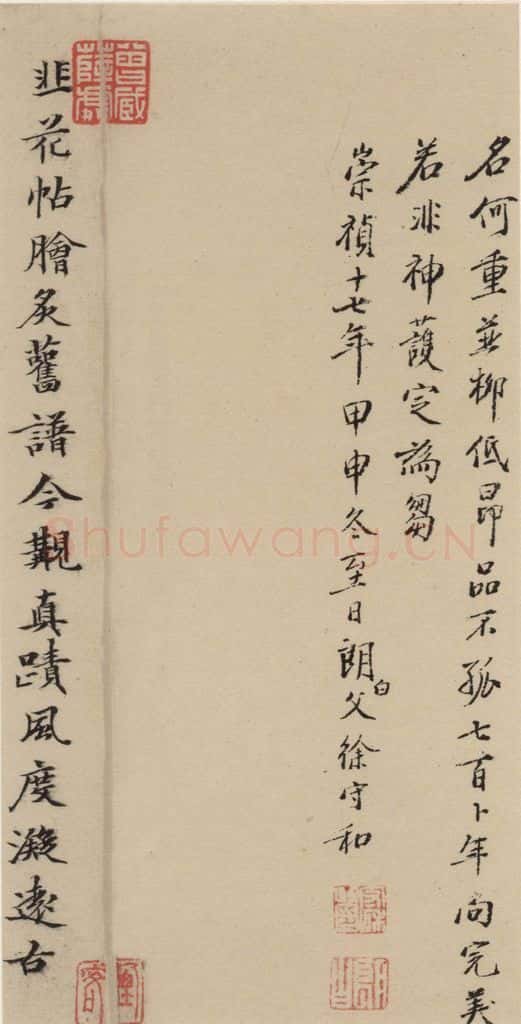 名何重並柳低昂品不孤七百卜年尚完美
若非神護定為芻
崇禎十七年甲申冬至日朗白父徐守和
韭花帖膾炙舊譜今觀真蹟風度凝遠古
曾藏
Shufawang.CN